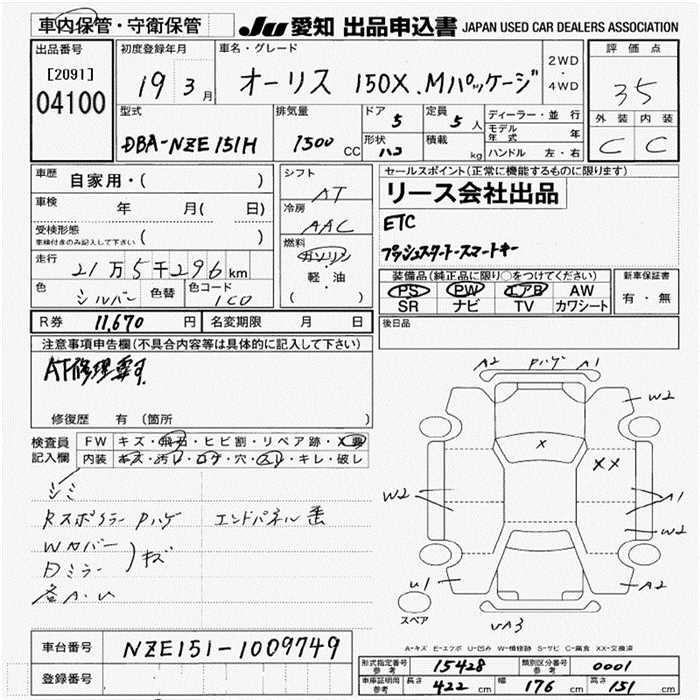 車内保管・守衛保管
JU 愛知 出品申込書 JAPAN USED CAR DEALERS ASSOCIATION
出品番号 初度登録年月 車名・グレード 評価点
[2091]
04100
19 3月
オーリス 150X.Mパッケージ
2WD・4WD
35
外装 内装
C C
型式 排気量 ドア 定員 ディーラー・並行
DBA-NZE151H 1500CC 5 5人
モデル年式 年
形状 ハコ 積載 kg ハンドル 左・右
車歴 自家用・( )
車検 年 月( 日)
受検形態 ( )
車検付きのみ記入して下さい
走行 21万5千296km
色 シルバー 色替 色コード 1C0
シフト AT
冷房 AAC
燃料 ガソリン
軽・油
( )
セールスポイント(正常に機能するものに限ります)
リース会社出品
ETC
プッシュスタートスマートキー
装備品(純正品に限り○をつけてください) 新車保証書
PS PW エアB AW
SR ナビ TV カワシート
有・無
R券 11,670円 名変期限 月 日
後日品
注意事項申告欄(不具合内容等は具体的に記入して下さい)
AT修理要す
修復歴 有(箇所 )
検査員記入欄
FW キズ・飛石・ヒビ割・リペア跡・X要
内装 キズ・汚レ・コゲ・穴・スレ・キレ・破レ
シミ
Rスポイラー Pハゲ エンドパネル歪
Wカバー
Dミラー
キズ
A2 Pハゲ A1
W2
X
XX
W2
A1
W2
U1
A2
UA3
スペア
A-キズ E-エクボ U-凹み W-補修跡 S-サビ C-腐食 XX-交換済
車台番号 NZE151-1009749
登録番号
形式指定番号 参考 15428 類別区分番号 参考 0001
車庫証明用 参考 長さ 422cm 幅 176cm 高さ 151cm